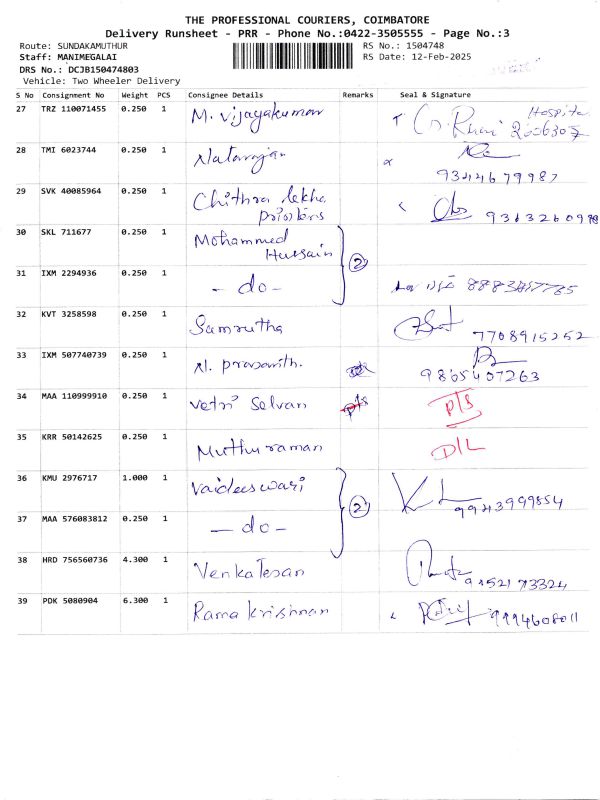 THE PROFESSIONAL COURIERS, COIMBATORE
Delivery Runsheet - PRR - Phone No.:0422-3505555 - Page No.:3
Route: SUNDAKAMUTHUR RS No.: 1504748
Staff: MANIMEGALAI RS Date: 12-Feb-2025
DRS No.: DCJB150474803
Vehicle: Two Wheeler Delivery
S No Consignment No Weight PCS Consignee Details Remarks Seal & Signature
27 TRZ 110071455 0.250 1 M. Vijayakumar Hospital
28 TMI 6023744 0.250 1 Natarajan 9344679987
29 SVK 40085964 0.250 1 Chithra lekha
Printers
30 SKL 711677 0.250 1 Mohammed
Hussain
2
31 IXM 2294936 0.250 1 - do -
32 KVT 3258598 0.250 1 Samrutha 7708915252
33 IXM 507740739 0.250 1 N. Prasanth. 9865407263
34 MAA 110999910 0.250 1 Vetri Selvan P/S P/S
35 KRR 50142625 0.250 1 Muthuraman D/L
36 KMU 2976717 1.000 1 Vaideeswari 9943999854
2
37 MAA 576083812 0.250 1 - do -
38 HRD 756560736 4.300 1 Venkatesan
39 PDK 5080904 6.300 1 Rama krishnan 9994608011